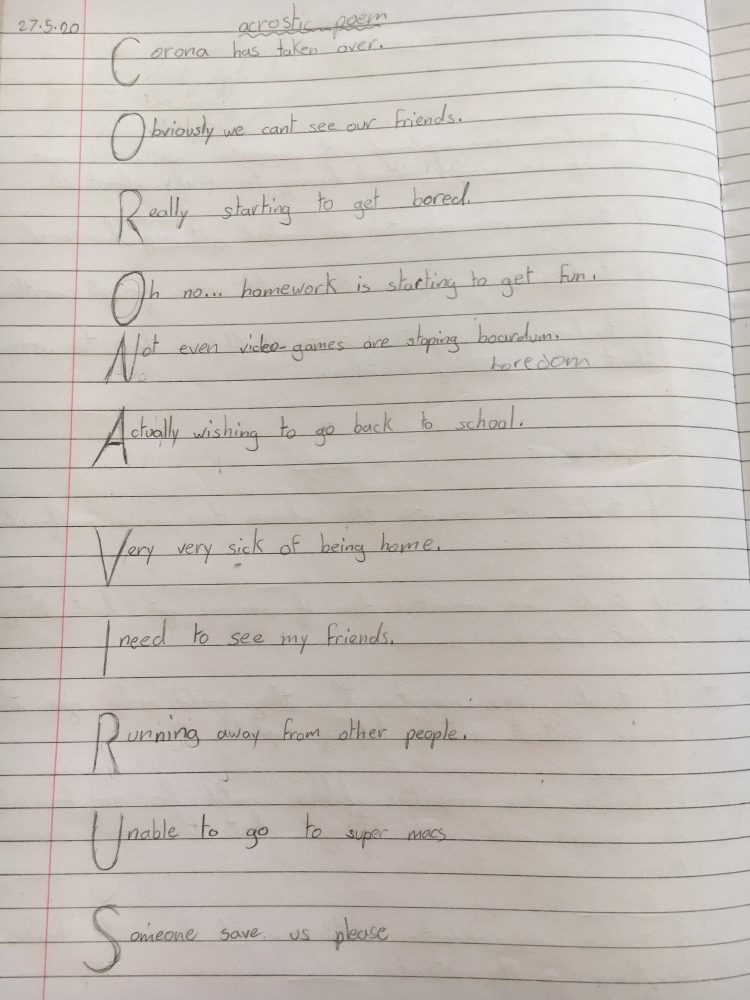 27.5.20 acrostic poem
Corona has taken over.
Obviously we cant see our friends.
Really starting to get bored.
Oh no... homework is starting to get fun.
Not even video-games are stoping boardum.
boredom
Actually wishing to go back to school.
Very very sick of being home.
I need to see my friends.
Running away from other people.
Unable to go to super macs
Someone save us please